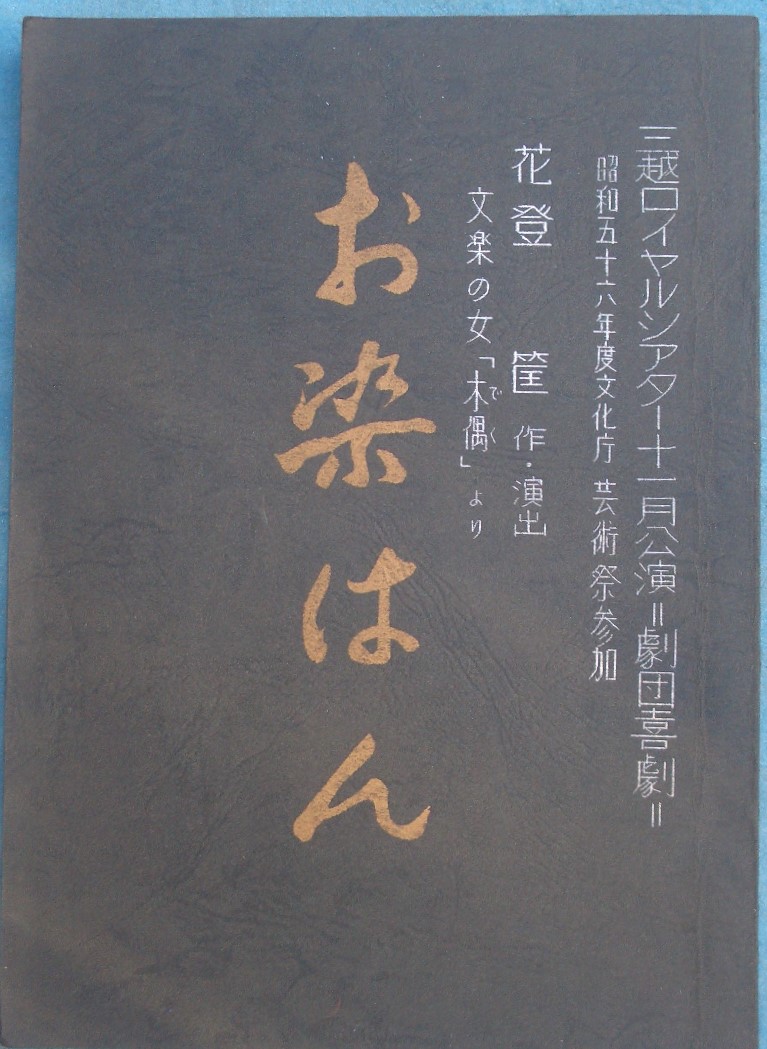 三越ロイヤルシアター十一月公演＝劇団喜劇＝
昭和五十六年度文化庁 芸術祭参加
花登 筐 作・演出
文楽の女「木偶」より
でく
お染はん